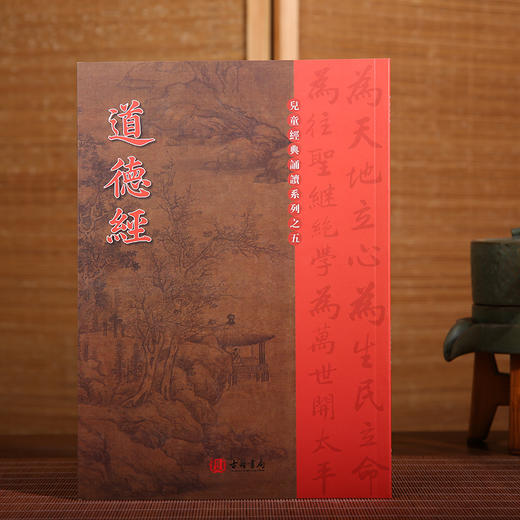 為天地立心為生民立命
為往聖繼絕學為萬世開太平
兒童經典誦讀系列之五
道德經